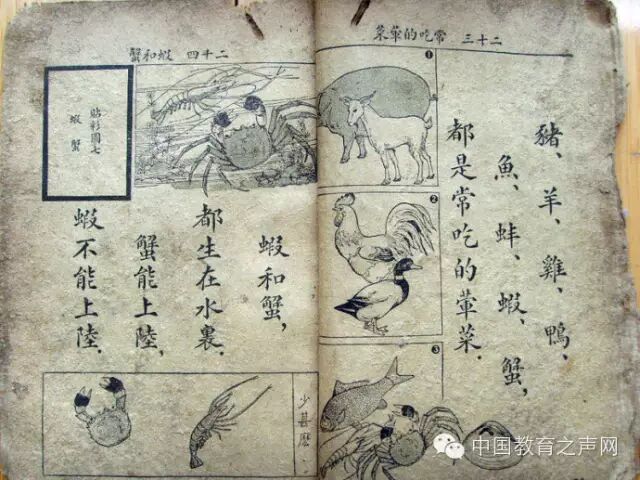 二十三 常吃的葷菜
豬、羊、雞、鴨、
魚、蚌、蝦、蟹,
都是常吃的葷菜.
1
2
3
二十四 蝦和蟹
貼彩圖七
蝦 蟹
蝦和蟹,
都生在水裏.
蟹能上陸,
蝦不能上陸.
少甚麽.
中国教育之声网